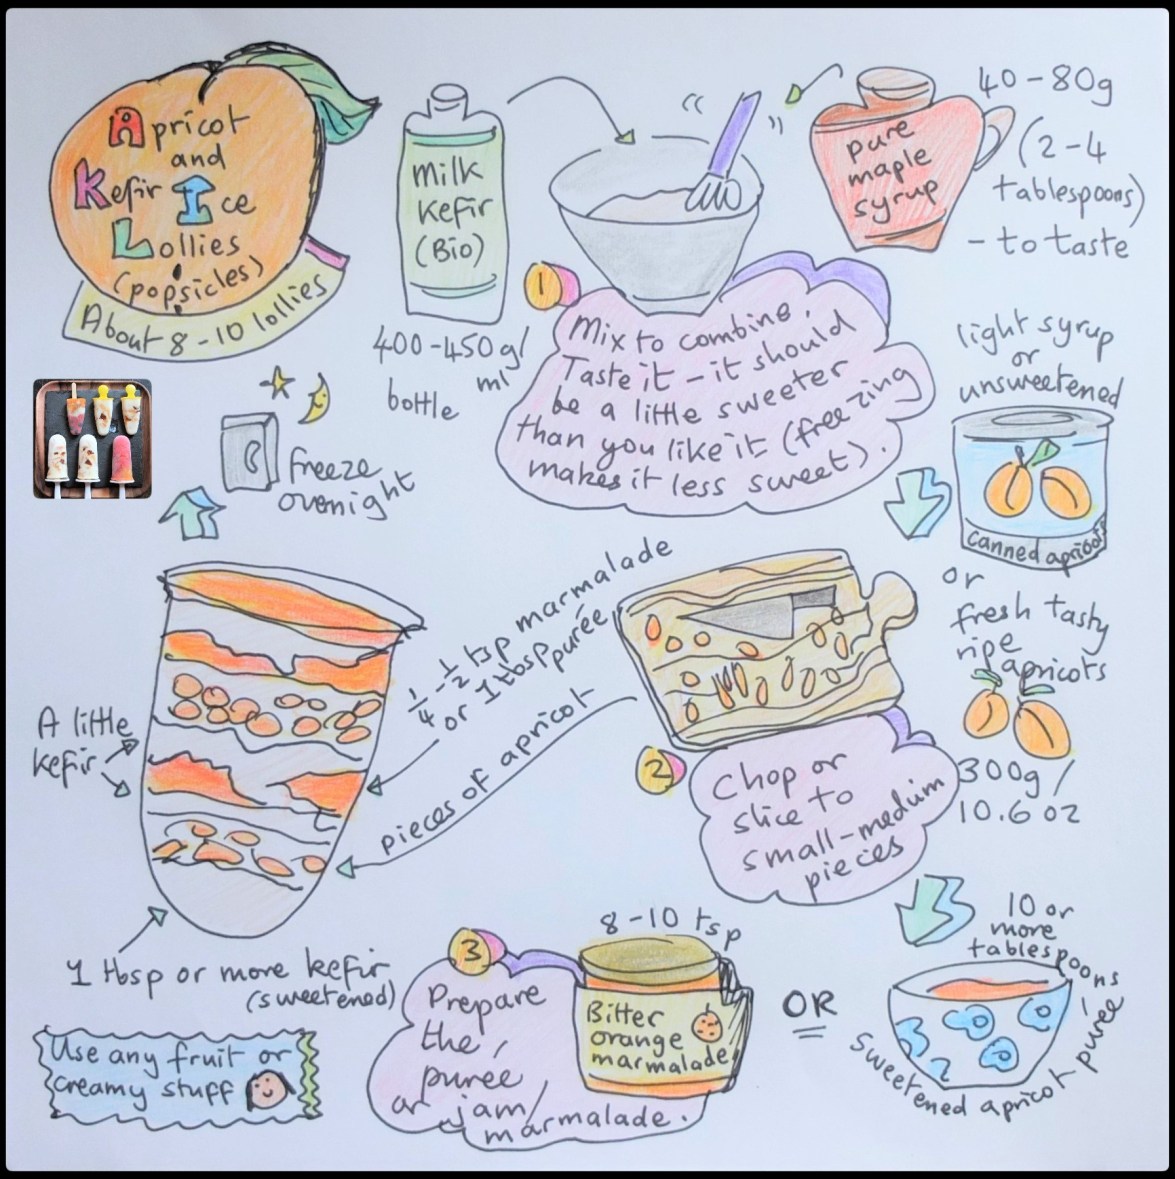 Apricot
and
Kefir Ice
Lollies
(popsicles)
About 8-10 lollies
milk
kefir
(Bio)
400-450g/
ml
bottle
pure
maple
syrup
40-80g
(2-4
tablespoons)
- to taste
1
Mix to combine.
Taste it - it should
be a little sweeter
than you like it (freezing
makes it less sweet).
light syrup
or
unsweetened
canned apricots
or
fresh tasty
ripe
apricots
300g/
10.6oz
2
Chop or
slice to
small-medium
pieces
freeze
overnight
1/4-1/2 tsp marmalade
or 1 tbsp purée
pieces of apricot
A little
kefir
1 tbsp or more kefir
(sweetened)
3
Prepare
the
puree
or jam/
marmalade.
8-10 tsp
Bitter
orange
marmalade
OR
10 or
more
tablespoons
sweetened apricot purée
Use any fruit or
creamy stuff